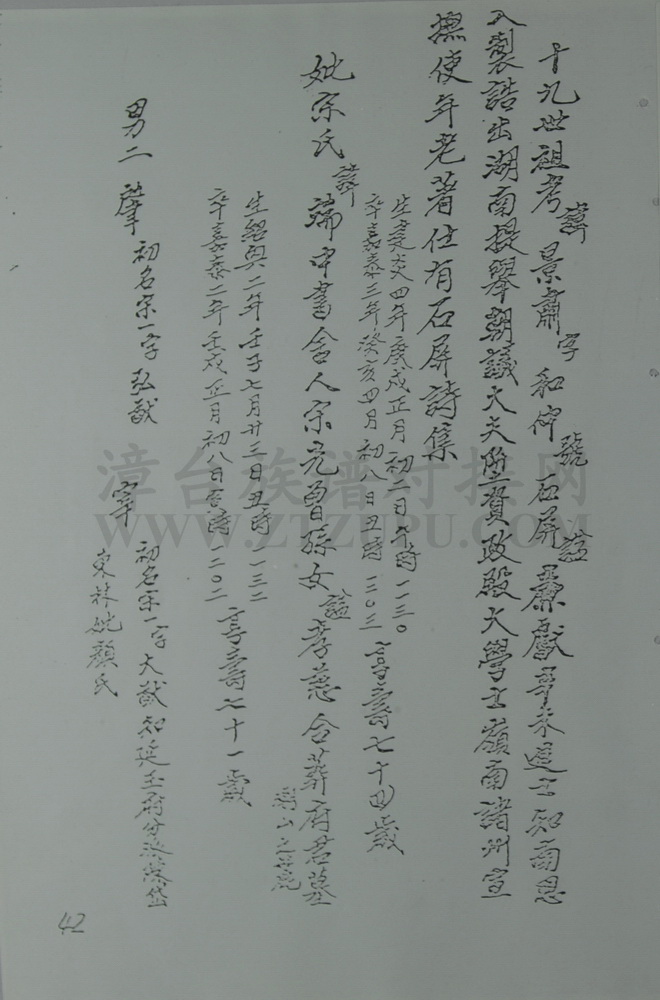 十九世祖考諱景肅字和仲號石屏諡康獻辛未進士知南恩
入製誥出湖南提舉朝議大夫陞資政殿大學士嶺南諸州宣
撫使年老著仕有石屏詩集
生建炎四年庚戌正月初二日午時一一三〇
卒嘉泰三年癸亥四月初八日丑時一二〇三
享壽七十四歲
妣宗氏諱端中書舍人宗元曾孫女諡孝慈合葬府君墓
山之
生紹興二年壬子七月廿三日丑時一一三二
卒嘉泰二年壬戌正月初八日酉時一二〇二
享壽七十一歲
男二 肇初名宗一字弘猷
宰初名宗一字大猷知延王府分派蔡岱
東林妣顏氏
42
漳台族谱对接网
WWW.ZTZUPU.COM